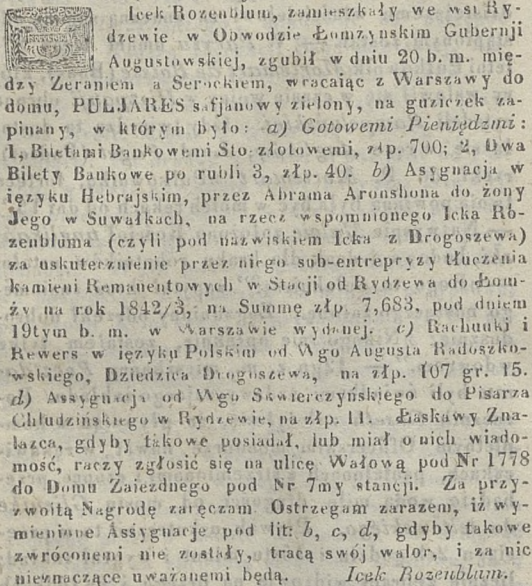 Icek Rozenblum, zamieszkały we wsi Ry-
dzewie w Obwodzie Łomzynskim Gubernji
Augustowskiej, zgubił w dniu 20 b. m. mię-
dzy Zeraniem a Serockiem, wracaiąc z Warszawy do
domu, PULJARES safjanowy zielony, na guziczek za-
pinany, w którym było: a) Gotowemi Pieniędzmi:
1, Biletami Bankowemi Sto złotowemi, złp. 700; 2, Dwa
Bilety Bankowe po rubli 3, złp. 40. b) Asygnacja w
ięzyku Hebrajskim, przez Abrama Aronshona do żony
Jego w Suwałkach, na rzecz wspomnionego Icka Ro-
zenbluma (czyli pod nazwiskiem Icka z Drogoszewa)
za uskutecznienie przez niego sub-entrepryzy tłuczenia
kamieni Remanentowych w Stacji od Rydzewa do Łom-
ży na rok 1842/3, na Summę złp 7,683, pod dniem
19tym b. m. w Warszawie wydanej. c) Rachunki i
Rewers w ięzyku Polskim od Wgo Augusta Radoszko-
wskiego, Dziedzica Drogoszewa, na złp. 107 gr. 15.
d) Assygnacja od Wgo Skwierczyńskiego do Pisarza
Chludzińskiego w Rydzewie, na złp. 11. Łaskawy Zna-
lazca, gdyby takowe posiadał, lub miał o nich wiado-
mość, raczy zgłosić się na ulicę Wałową pod Nr 1778
do Domu Zaiezdnego pod Nr 7my stancji. Za przy-
zwoitą Nagrodę zaręczam. Ostrzegam zarazem, iż wy-
mienione Assygnacje pod lit: b, c, d, gdyby takowe
zwróconemi nie zostały, tracą swój walor, i za nic
nieznaczące uważanemi będą. Icek Rozenblum.